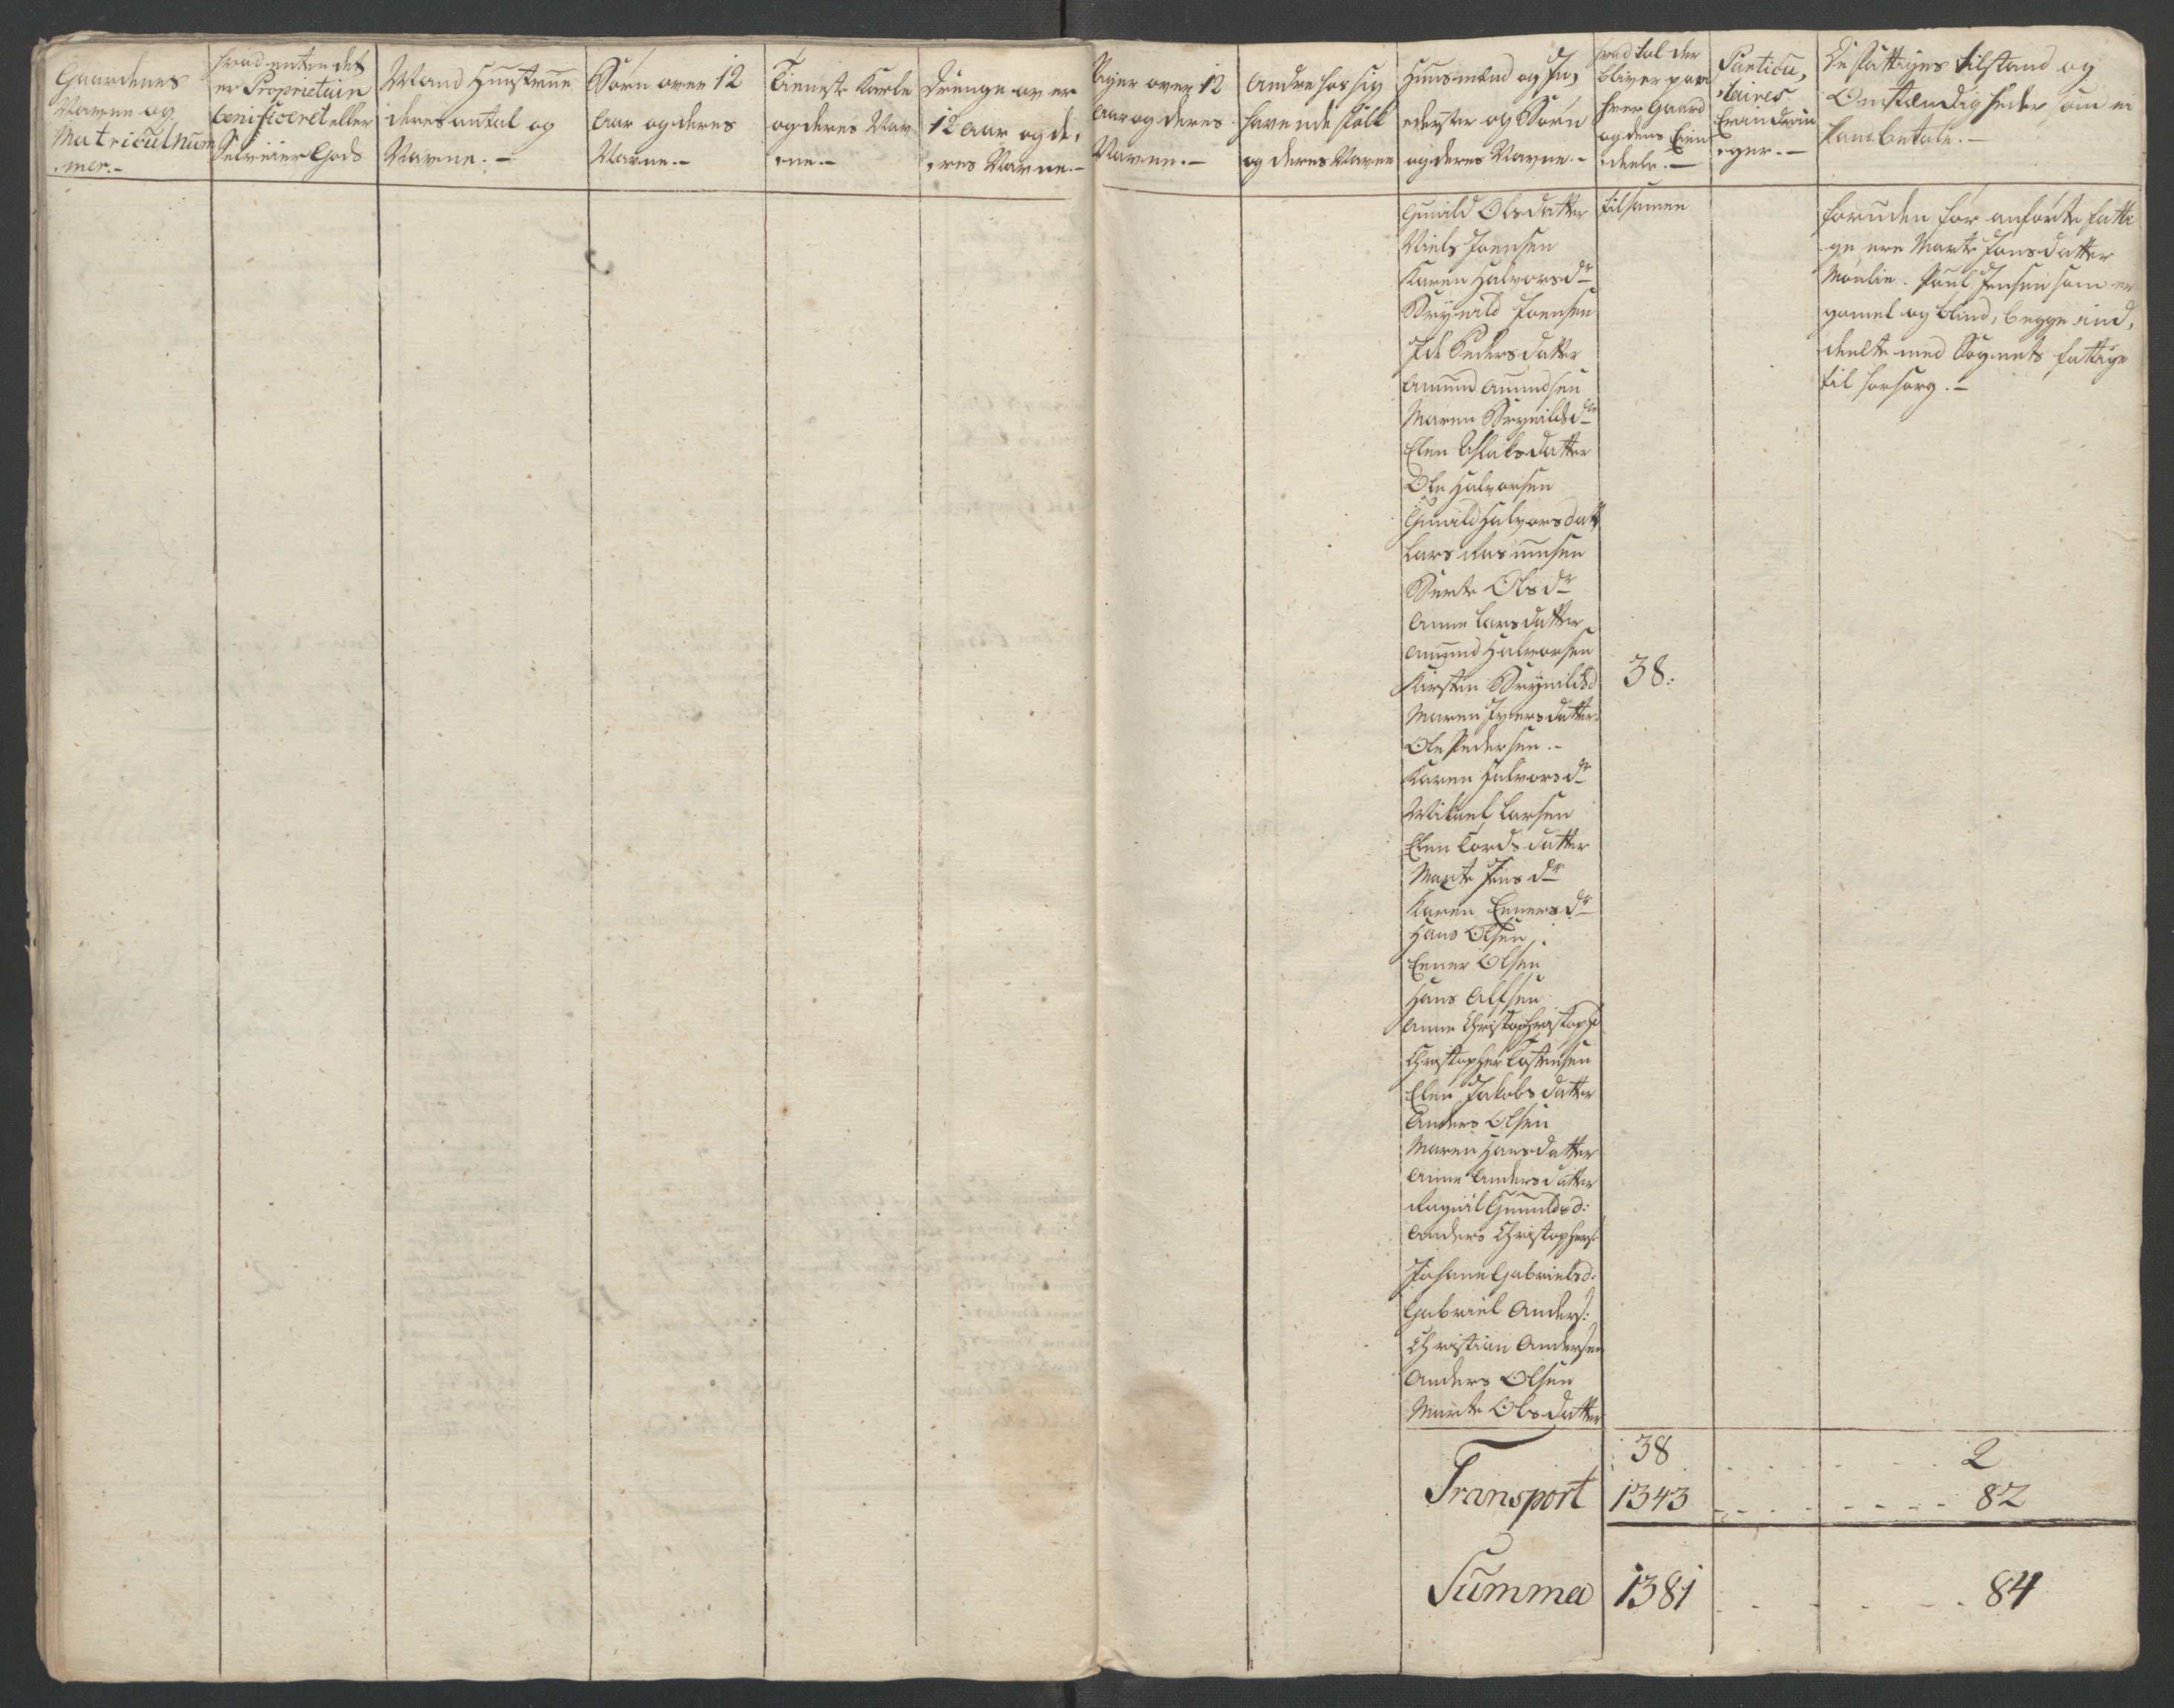 Gaardenes
Navne og
Matriculnum
mer.-
hvad enten det
er Proprietair
benificeret eller
Selveier Gods
Mand Hunstrue
deres antal og
Navne.-
Børn over 12
Aar og deres
Navne.-
Tieneste Karle
og deres Nav
ne.-
Drenge over
12 Aar og de,
res Navne.-
Piger over 12
Aar og deres
Navne.-
Andre hos sig
havende folk
og deres Navne
Huusmænd og In,
derster og Børn
og deres Navne.-
hvad tal der
bliver paa
hver Gaard
og dens Eien
deele.-
Particu,
laires
Erindrin
ger.-
De Fattiges tilstand og
Omstændigheder som ei
kand betale.-
Gunild Olsdatter
Niels Joensen
Karen Halvorsdr
Brynild Joensen
Ide Pedersdatter
Amund Amundsen
Maren Brynildsdr
Elen Aslaksdatter
Ole Halvorsen
Gunild Halvorsdatt
Lars Rasmusen
Berte Olsdr
Anne Larsdatter
Amund Halvorsen
Kirsten Brynildsd
Maren Iversdatter
Ole Pedersen.-
Karen Halvorsdr
Mikael Larsen
Elen Tordsdatter
Marte Jensdr
Karen Enersdr
Hans Olsen
Ener Olsen
Hans Alfsen
Anne
Christopher Tostensen
Elen Jakobsdatter
Anders Olsen
Maren Hansdatter
Anne Andersdatter
Ragnil Gunuldsd:
Anders Christophers:
Johane Gabrielsd:
Gabriel Anders:
Christian Andersen
Anders Olsen
Marte Olsdatter
tilsamen
38:
foruden for anførte fatti
ge ere Marte Jonsdatter
Moelie. Poul Jensen som er
gamel og blind, begge ind,
deelte med Sognets fattige
til forsorg.-
38 2
Transport 1343 82
Summa 1381 84